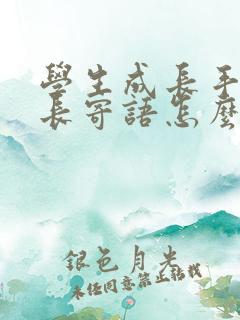 學生成長手
長寄語怎麼
銀色月光
未經同意禁止轉載